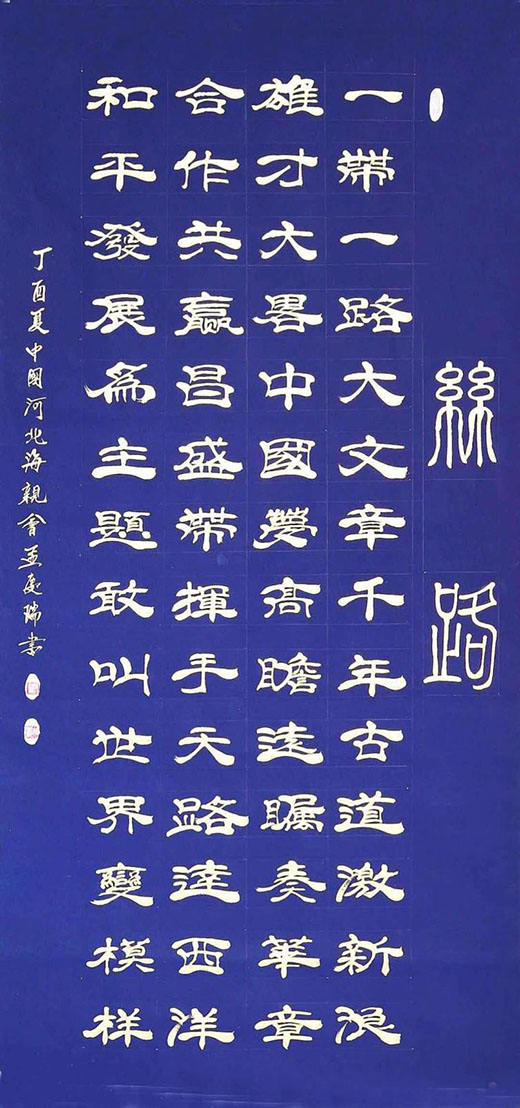 絲路
一帶一路大文章千年古道激新浪
雄才大畧中國夢高瞻遠矚奏華章
合作共贏昌盛帶揮手天路達西洋
和平發展為主題敢叫世界變模樣
丁酉夏中國河北海親會孟慶瑞書